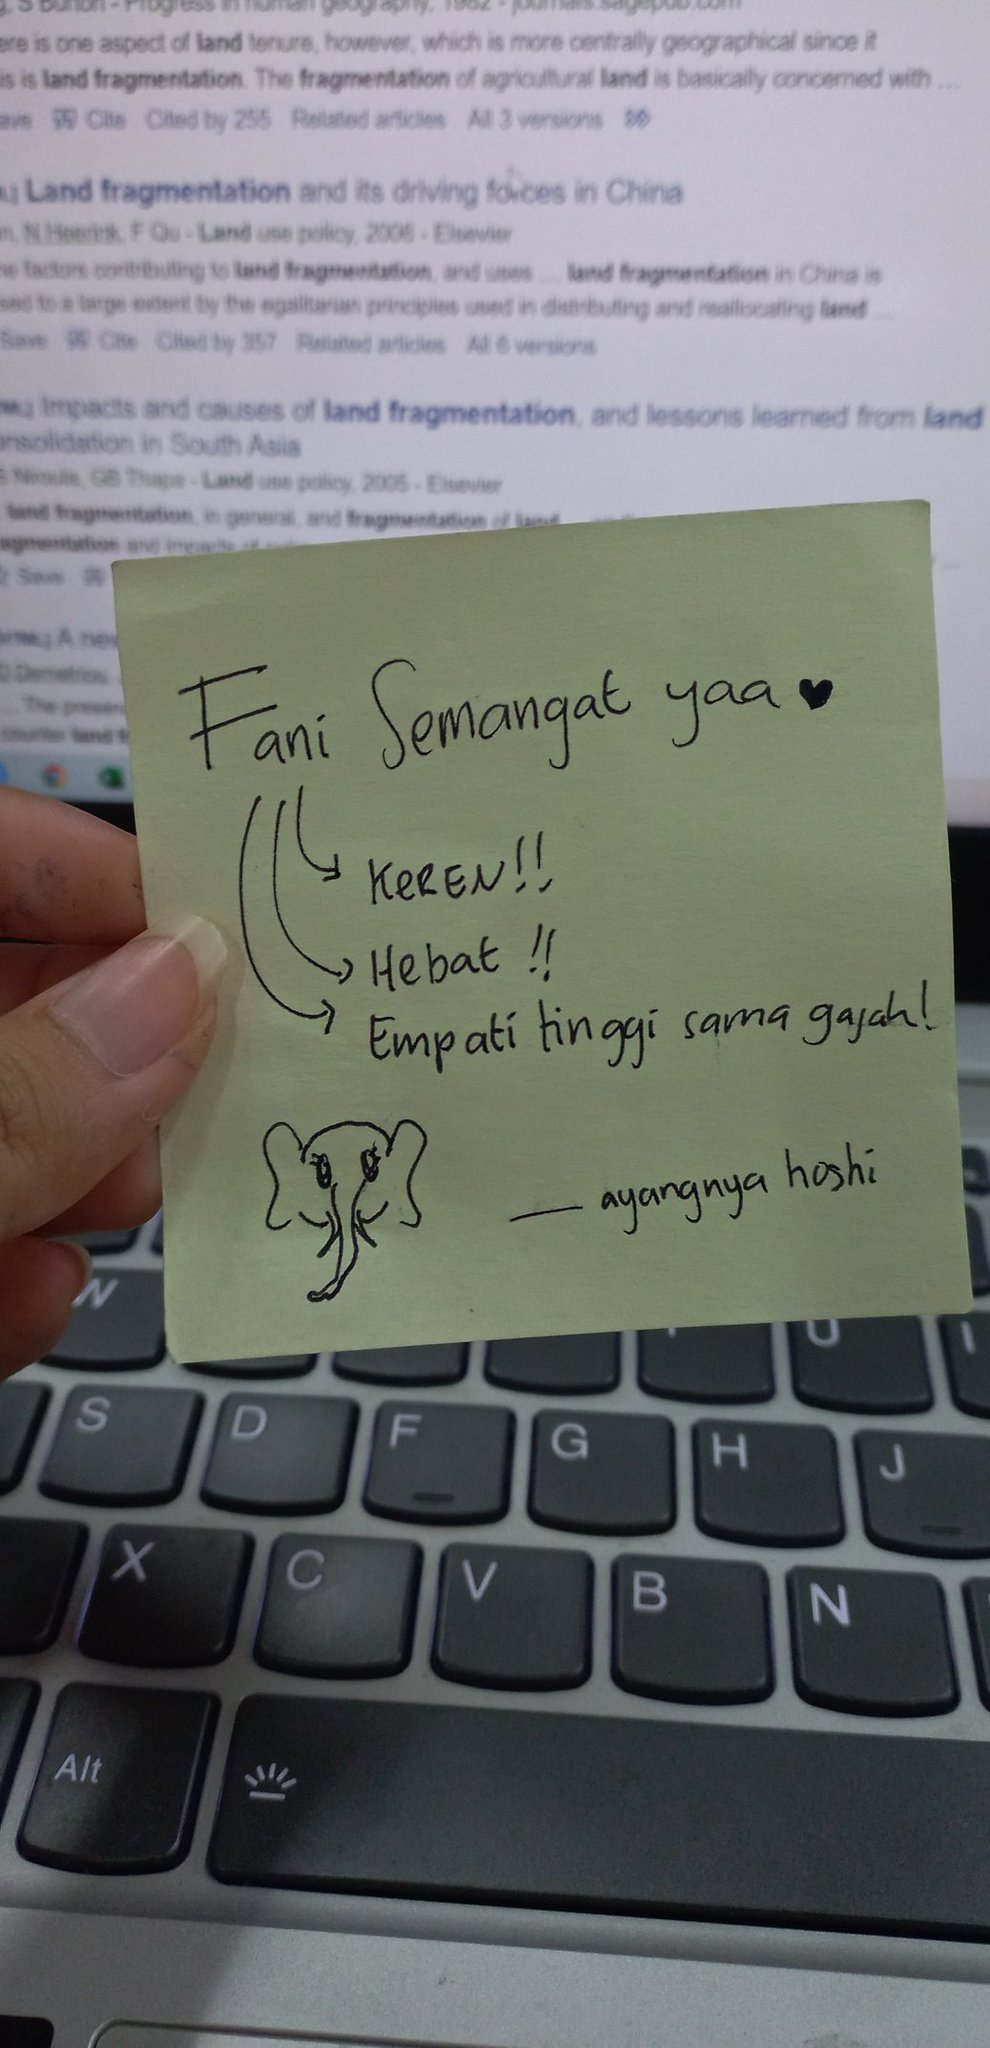 S Burton - Progress in human geography, 1982 - journals.sagepub.com
ere is one aspect of land tenure, however, which is more centrally geographical since it
is is land fragmentation. The fragmentation of agricultural land is basically concerned with ...
ave Cite Cited by 255 Related articles All 3 versions
Land fragmentation and its driving forces in China
n, N Heerink, F Qu - Land use policy, 2006 - Elsevier
he factors contributing to land fragmentation, and uses ... land fragmentation in China is
sed to a large extent by the egalitarian principles used in distributing and reallocating land ...
Save Cite Cited by 357 Related articles All 6 versions
Impacts and causes of land fragmentation, and lessons learned from land
onsolidation in South Asia
Niroula, GB Thapa - Land use policy, 2005 - Elsevier
land fragmentation, in general, and fragmentation of land
agmentation and impacts of
Save
A new
Demetriou
The present
counter land
Fani Semangat yaa ♥
KEREN!!
Hebat !!
Empati tinggi sama gajah!
— ayangnya hoshi
W U I
S D F G H J
X C V B N
Alt